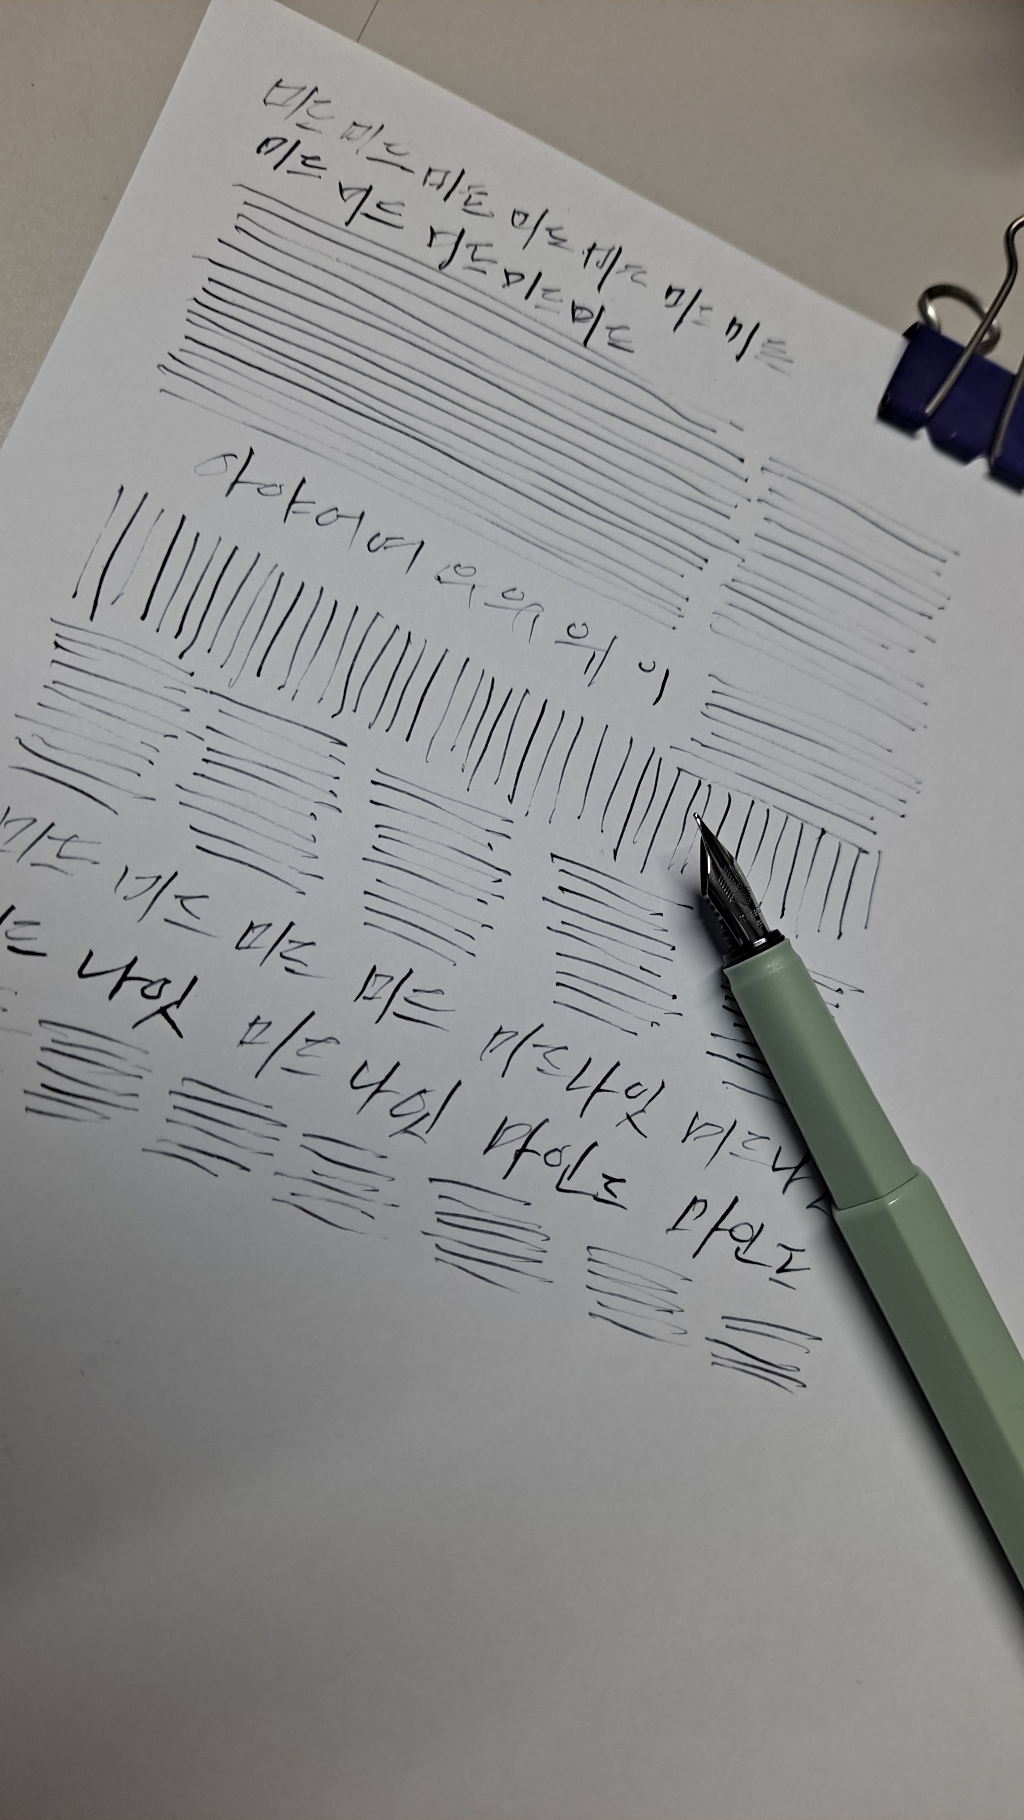 미드 미드 미드 미드 미드 미드 미드
미드 미드 미드 미드 미드
아 야 어 여 으 의 위 이
미드 미드 미드 미드 미드나잇 미드나
드 나잇 미드 나잇 마인드 마인드